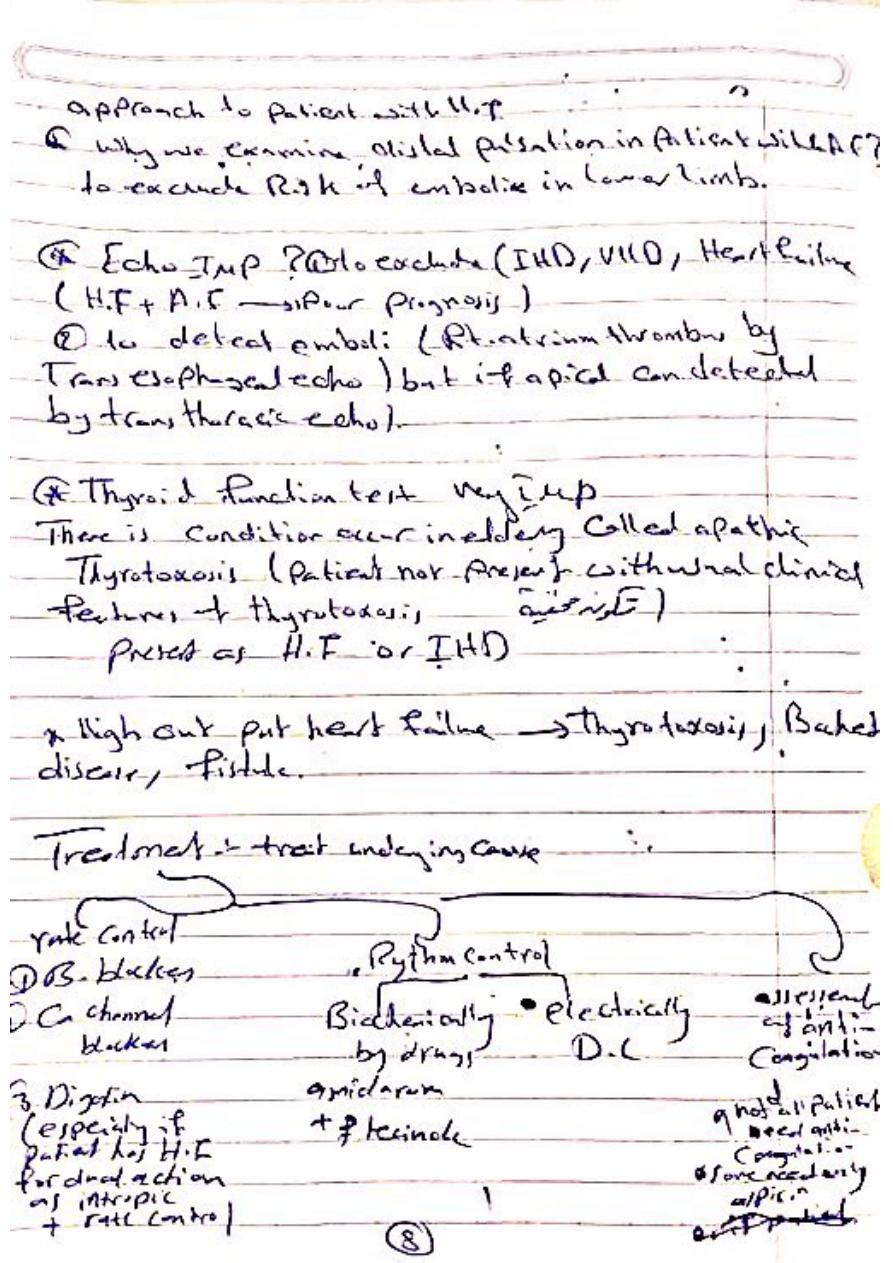 approach to patient with H.F
Why we examine distal pulsation in patient with AF?
to exclude Risk of embolie in lower limb.
* Echo IMP ? ① to exclude (IHD, VHD, Heart failure
( H.F + A.F → Poor prognosis )
② to detect emboli (Rt. atrium thrombus by
Trans esophageal echo ) but if apical can detected
by trans thoracic echo ).
* Thyroid function test very Imp
There is condition occur in eldery Called apathic
Thyrotoxosis (patient not present with usual clinical
features of thyrotoxosis تكون مخفية )
Present as H.F or IHD
* High out put heart failure → Thyrotoxosis,
disease, fistula.
Treatment :- treat underying cause
rate control
① B. blockers
Ca channel
blockers
3 Digoxin
(especialy if
patient has H.F
for dual action
as intropic
+ rate control
Rythm control
Biochemically
by drugs
amidarum
+
electrically
D.C
assessment
of anti-
Coagulation
not all patient
need anti-
Coagulation
some need only
aspirin
8